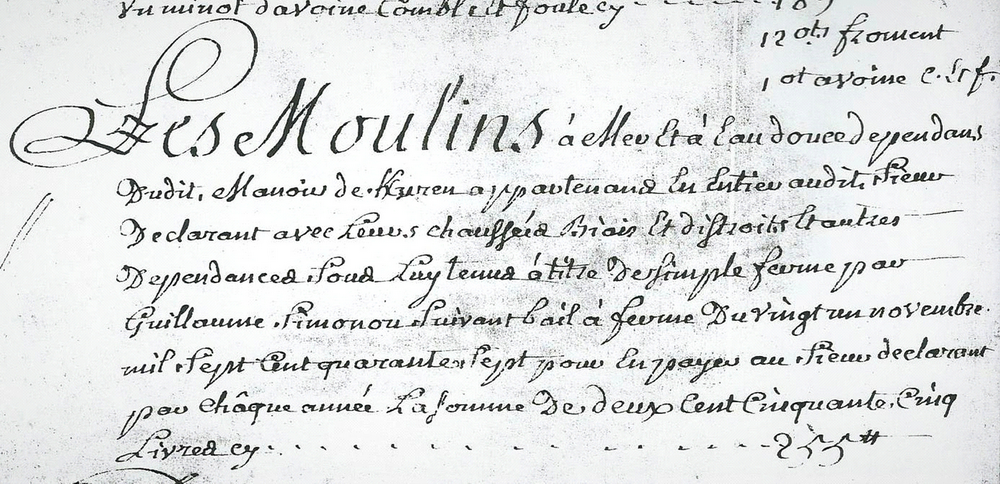 un minot d'avoine comble et foule cy - - - -
12 ots froment
1 ot avoine c. et f.
Les Moulins à Mer et à Eau douce dependans
Dudit, Manoir de Kyuren appartenans En Entier audit, Sieur
Declarant avec Leurs chaussées Biais Et distroits Et autres
Dependances Sous Luy tenus à titre De simple ferme par
Guillaume Simonou Suivant bail à ferme Du vingt un novembre
mil Sept Cent quarante Sept pour En payer au Sieur declarant
par châque année La somme De deux Cent Cinquante Cinq
Livres cy - - - - - - - - - - 255#